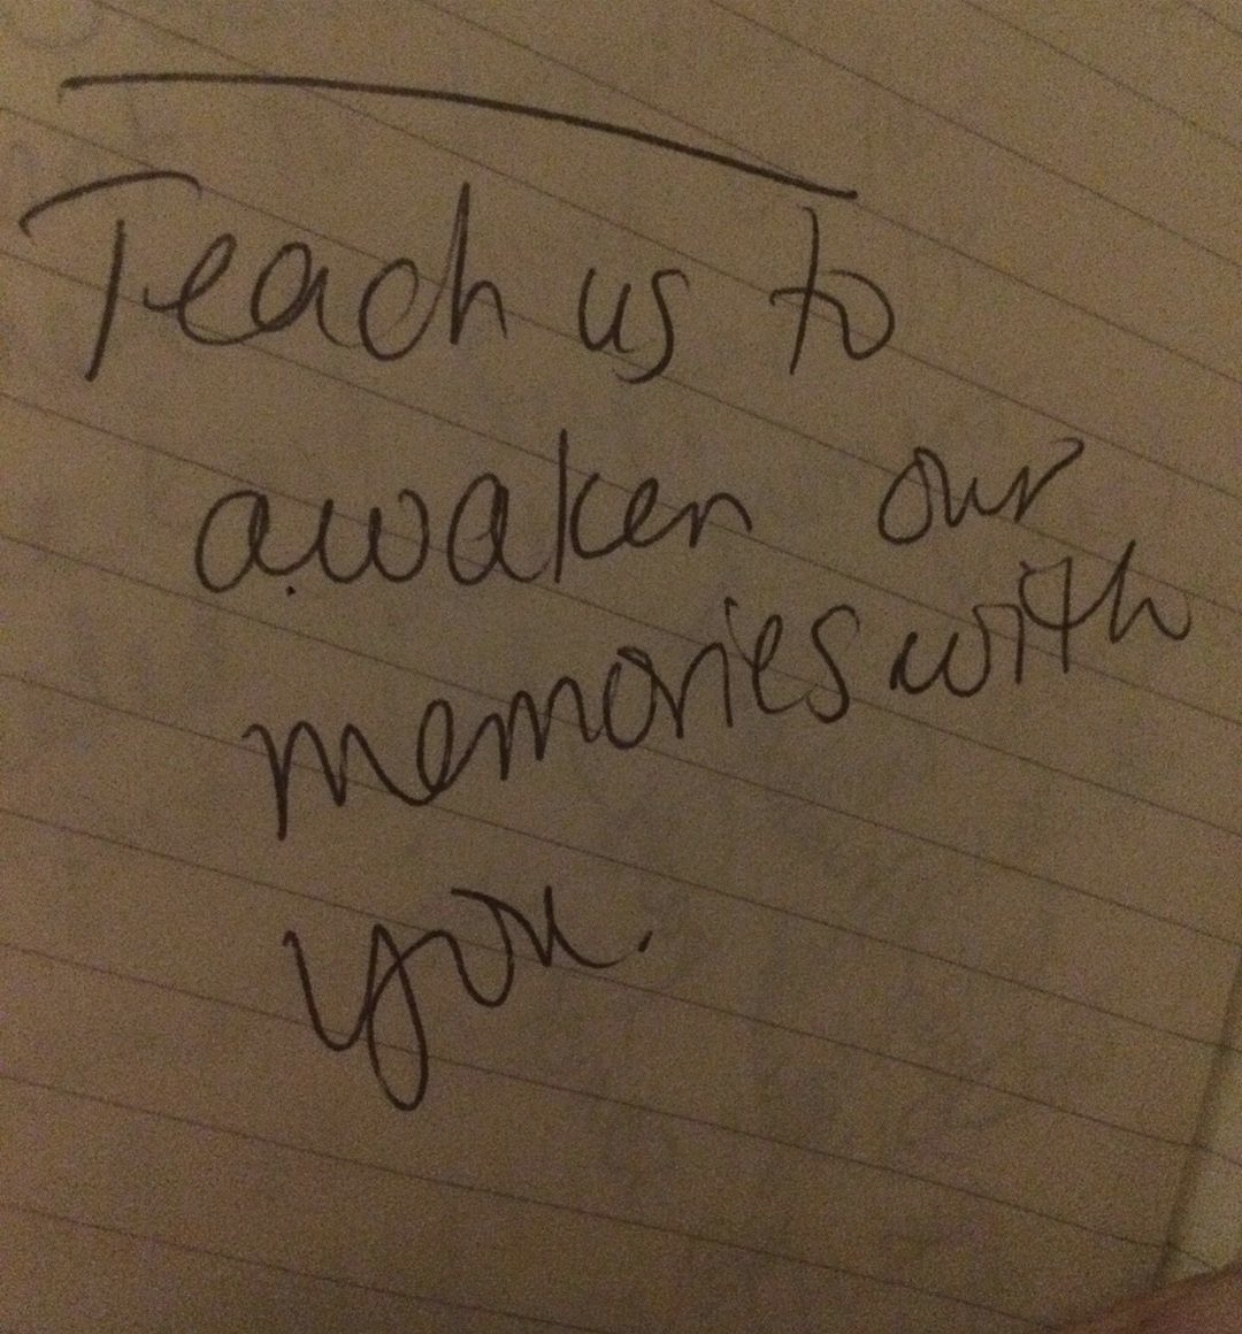 Teach us to
awaken our
memories with
you.